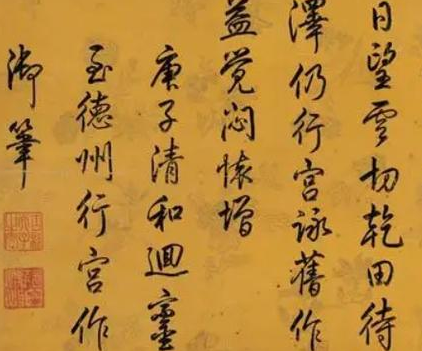 日望雲切乾田待
澤仍行宮詠舊作
益覺悶懷增
庚子清和迴鑾
至德州行宮作
御筆